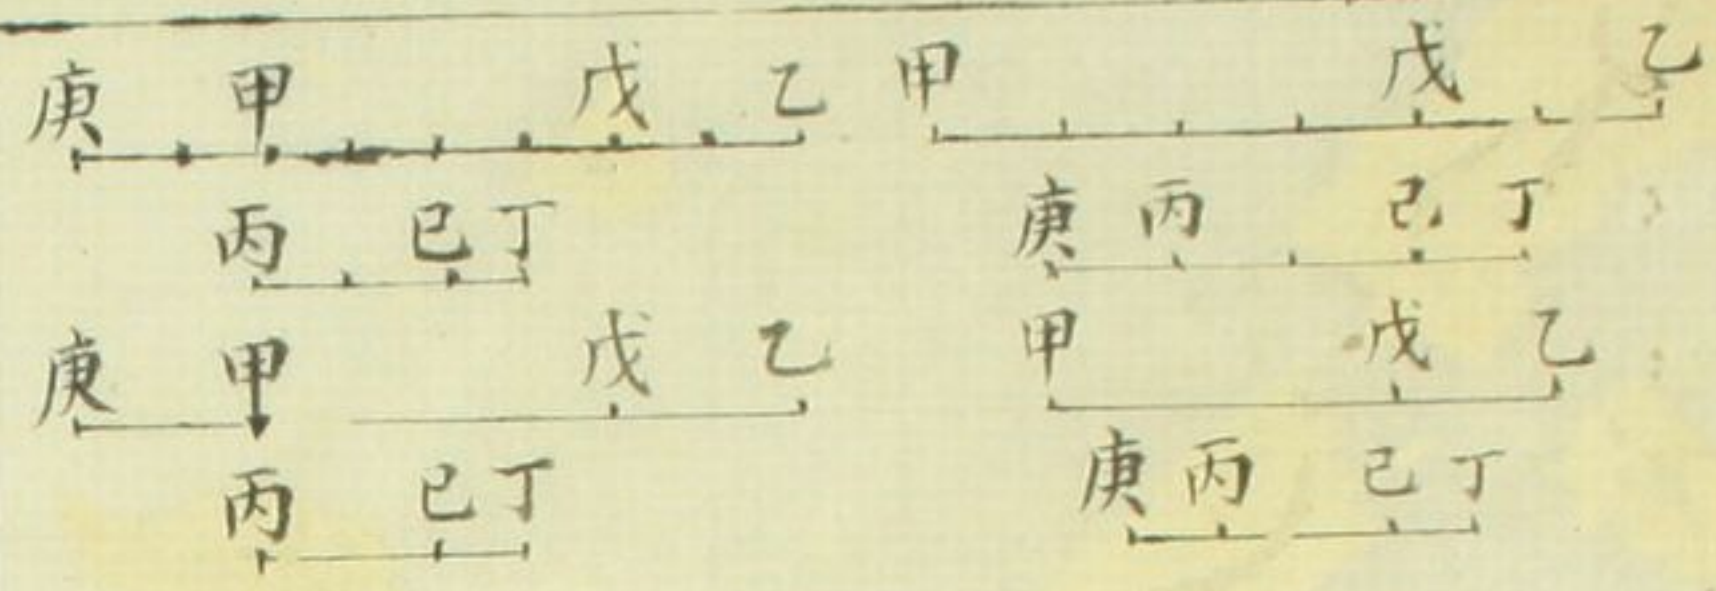 庚 甲 戊 乙 甲 戊 乙
丙 已 丁 庚 丙 己 丁
庚 甲 戊 乙 甲 戊 乙
丙 已 丁 庚 丙 己 丁